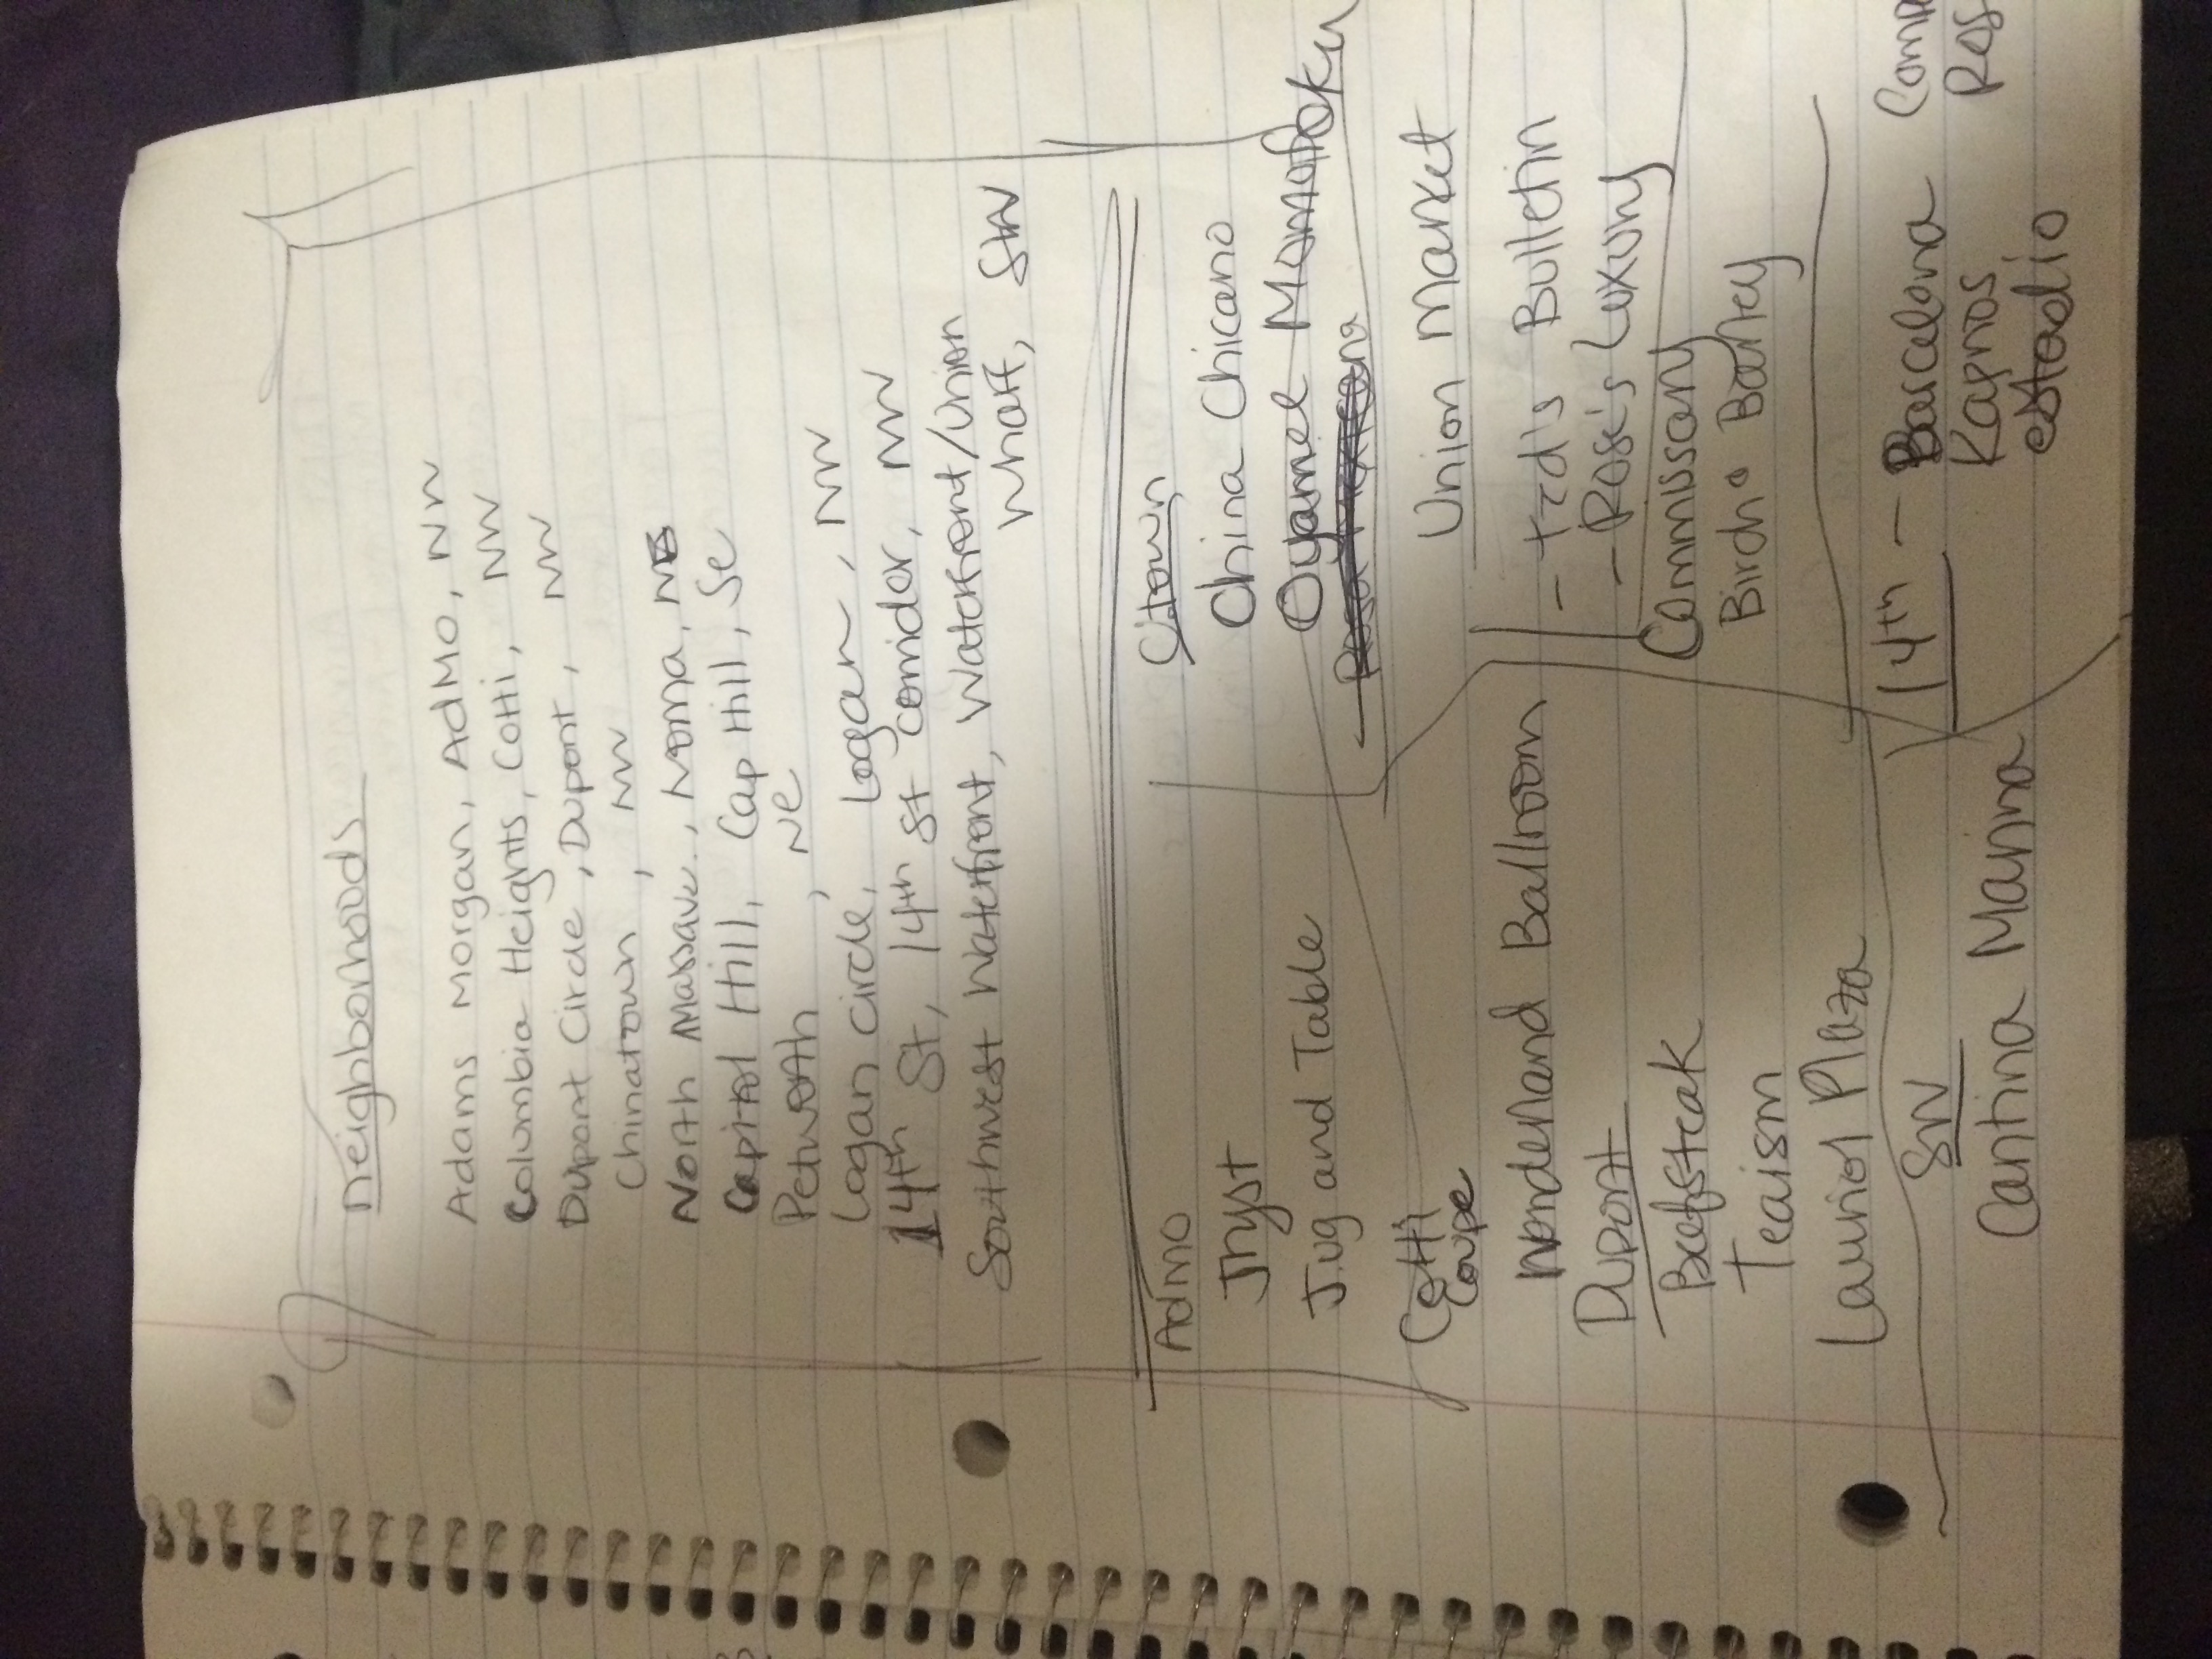 neighborhoods
Adams Morgan, AdMo, NW
Columbia Heights, CoHi, NW
Dupont Circle, Dupont, NW
Chinatown, NW
North Massave., Noma, NE
Capitol Hill, Cap Hill, Se
Petworth, Ne
Logan circle, Logan, NW
14th St, 14th st corridor, NW
Southwest Waterfront, Waterfront/Union
Wharf, SW
AdMo
Tryst
Jug and Table
CoHi
Coupe
Wonderland Ballroom
Dupont
Beefsteak
Teaism
Lauriol Plaza
SW
Cantina Marina
Ctown
China Chicano
Oyamel Momofoku
Rosa Mexicana
Union Market
- Ted's Bulletin
- Rose's Luxury
Commissary
Birch & Barley
14th - Barcelona Comp
Kapnos, Ros
estadio